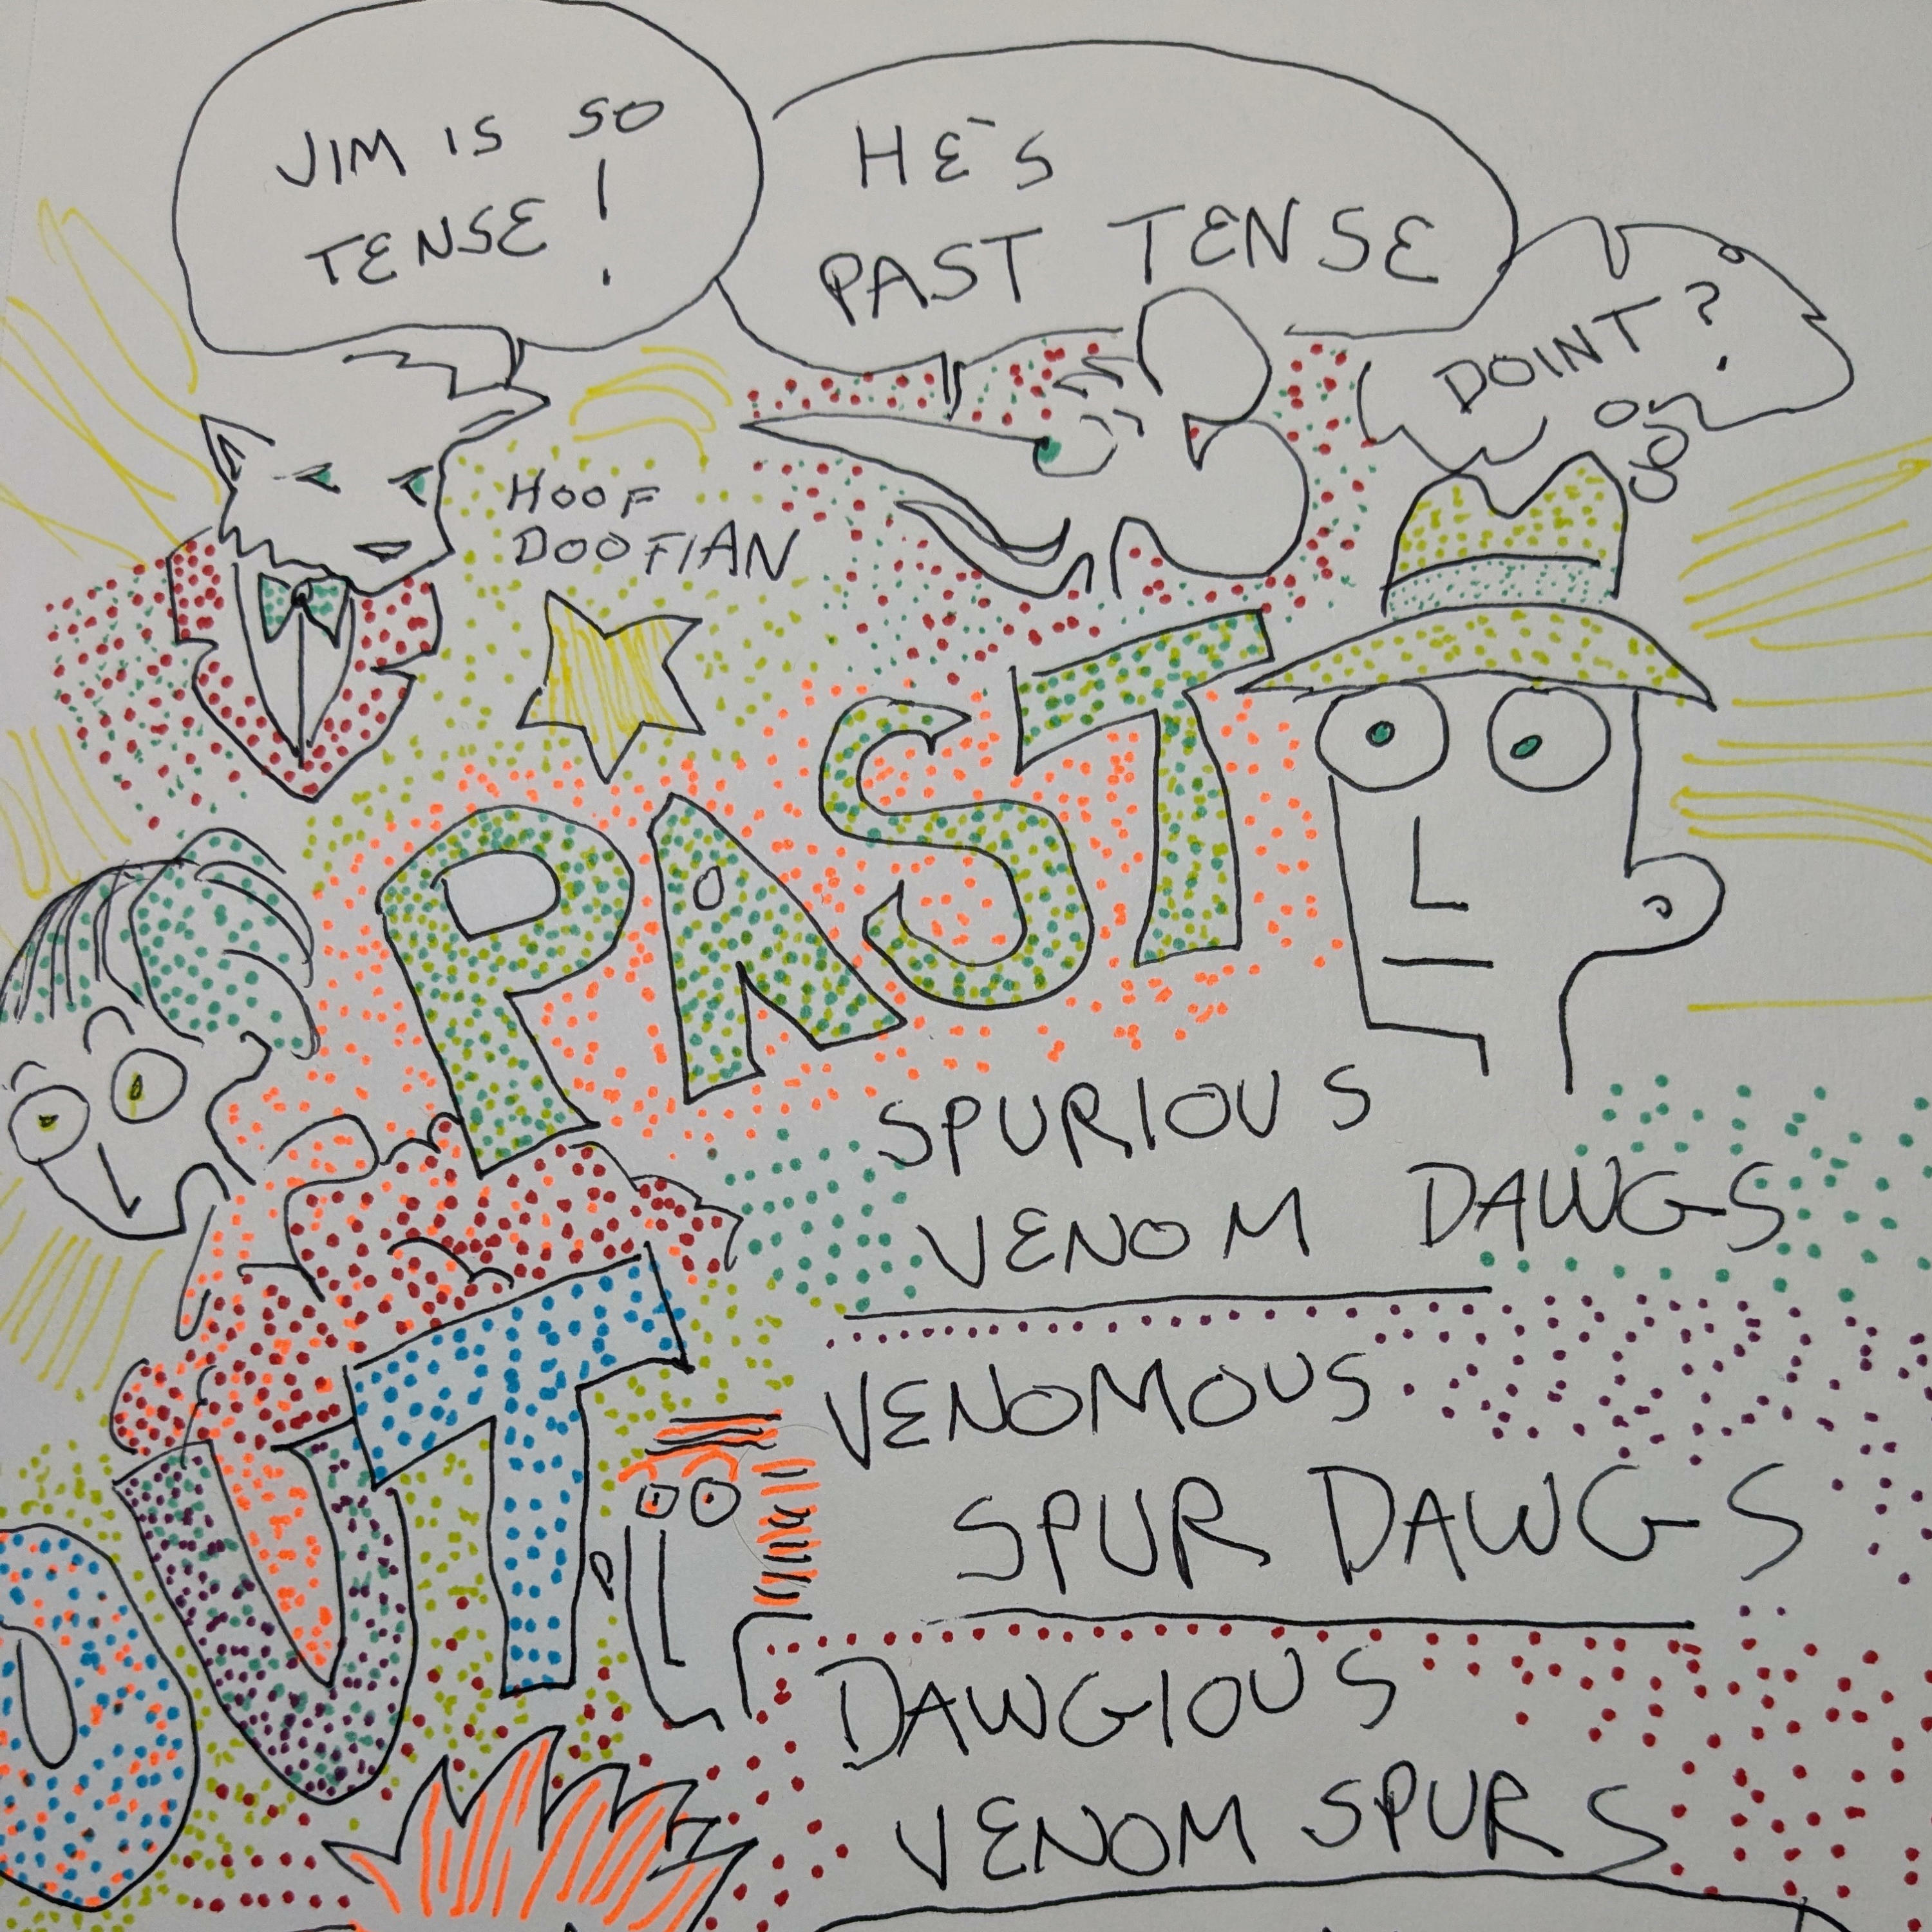 JIM IS SO
TENSE!
HE'S
PAST TENSE
DOINT?
HOOF
DOOFIAN
PAST
OUT
SPURIOUS
VENOM DAWGS
VENOMOUS
SPUR DAWGS
DAWGIOUS
VENOM SPURS